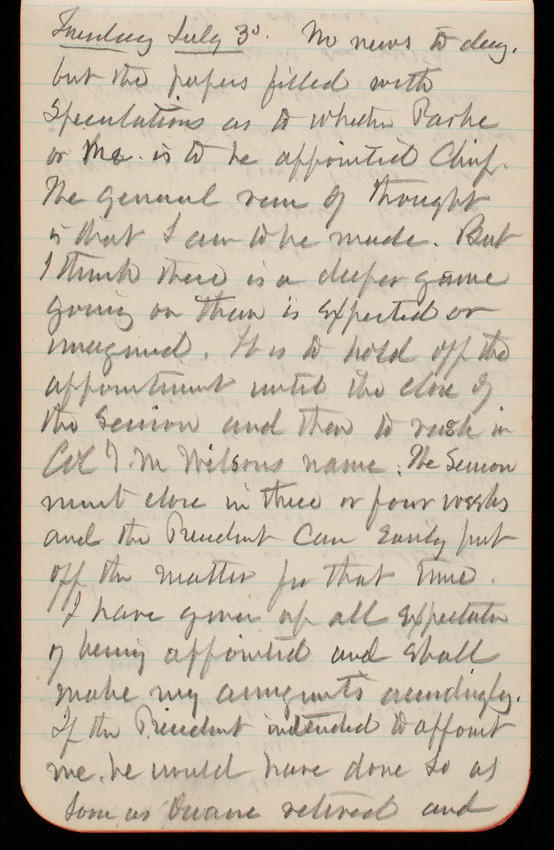 Tuesday July 3d. No news to day.
but the papers filled with
Speculations as to whether Parke
or me. is to be appointed Chief.
The general vein of thought
is that I am to be made. But
I think there is a deeper game
going on than is expected or
imagined. It is to hold off the
appointment until the close of
the Session and then to rush in
Col J. M Wilsons name. The Session
must close in three or four weeks
and the President can easily put
off the matter for that time.
I have given up all expectation
of being appointed and shall
make my arrangements accordingly.
If the President intended to appoint
me. he would have done so as
soon as Duane retired and